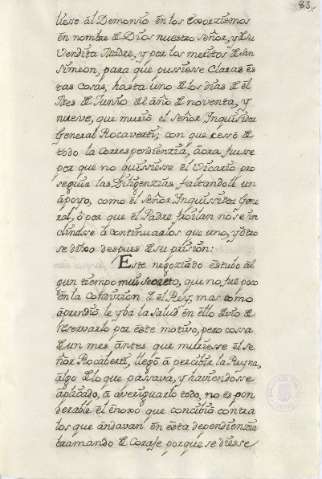 83.
liesse al Demonio en los Exorzismos
en nombre de Dios nuestro Señor, y su
Vendita Madre, y por los meritos de San
Simeon, para que pusiesse Claras es
tas cosas, hasta uno de los dias de el
Mes de Junio de el año de noventa, y
nueve, que murió el Señor Inquisidor
General Rocaverti; con que cessó de
todo la correspondenzia, aora fuese
por que no quisiesse el Vicario pro
seguir las diligenzias, faltandole un
apoyo, como el Señor Inquisidor Gene
ral, ó por que el Padre froilan no se in
clinasse á continuarlas que uno, y otro
se dijo despues de su prision:
Este negoziado estubo al
gun tiempo mui secreto, que no fue poco
en la Condizion de el Rey, mas como
aprendio le yba la salud en ello, hubo de
reservarlo por este motivo, pero cossa
de un mes antes que muriesse el se
ñor Rocaberti, llegó á percibir la Reyna,
algo de lo que passava, y haviendose
aplicado, á averiguarlo todo, no es pon
derable el enojo que concivio contra
los que andavan en esta dependienzia
bramando de Coraje porque se diesse